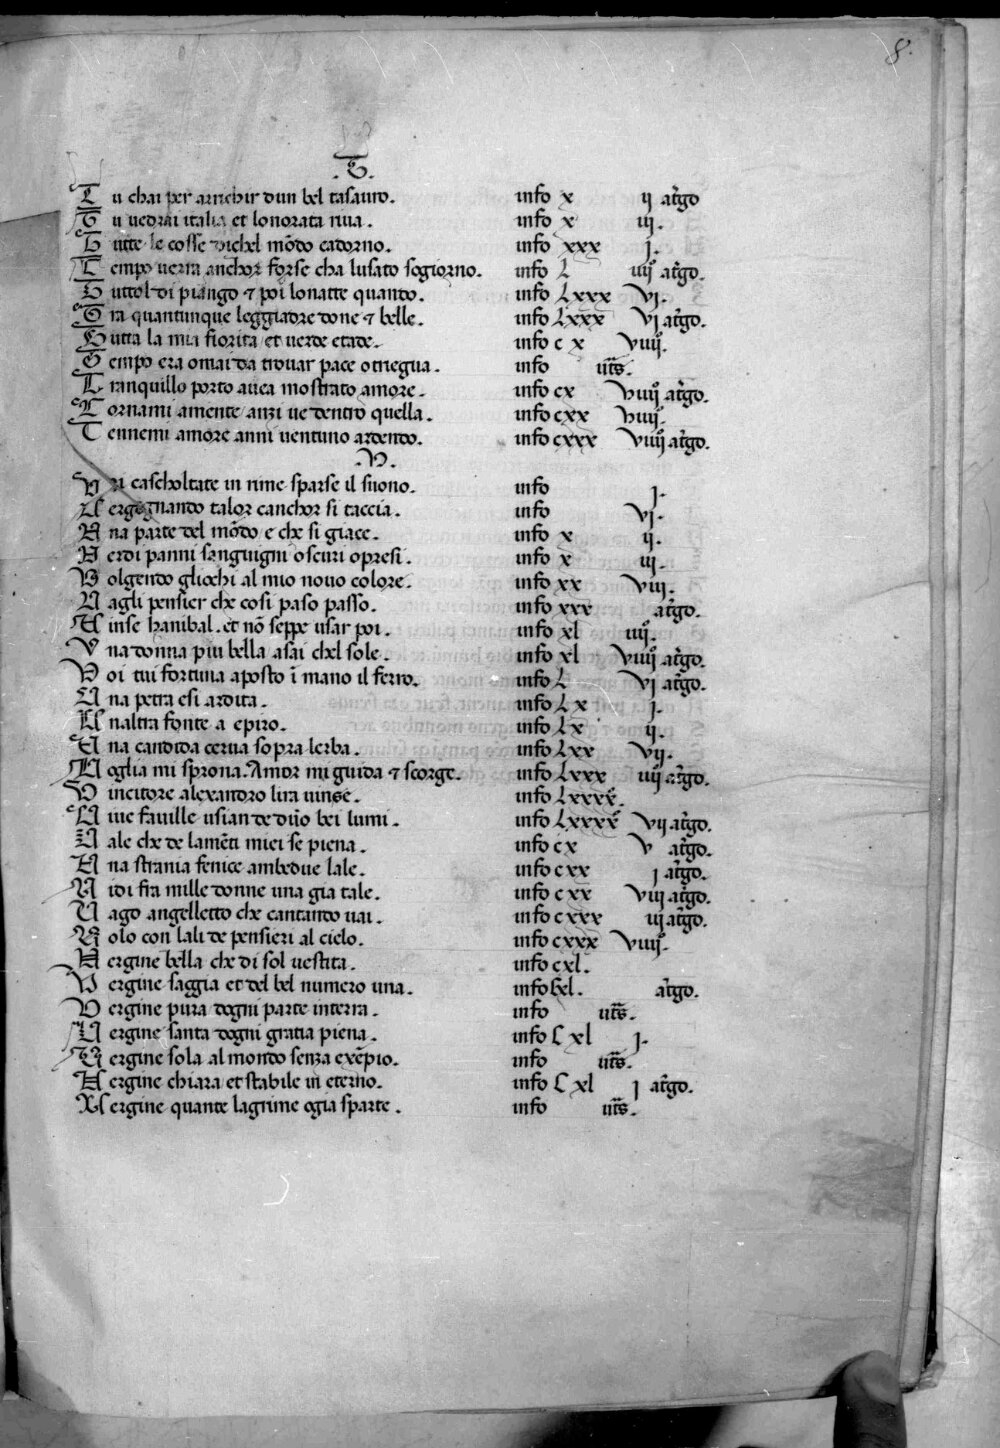 8.
.T.
Tu chai per arrichir dun bel tasauro. info x ii at̃go
Tu uedrai italia et lonorata riua. info x iii.
Tutte le cosse dichel mõdo cadorno. info xxx i.
Tempo uerra anchor forse cha lusato sogiorno. info L iiiiº at̃go.
Tuttol di piango et poi lonatte quando. info Lxxx vi.
Tra quantunque leggiadre done et belle. info Lxxx vi at̃go.
Tutta la mia fiorita et uerde etade. info c x viiiiº.
Tempo era omai da trouar pace otregua. info ut̃s.
Tranquillo porto auea mostrato amore. info cx viiiiº at̃go.
Tornami amente anzi ue dentro quella. info cxx viiiiº.
Tennemi amore anni uentuno ardendo. info cxxx viiiiº at̃go.
.V.
Vri cascholtate in rime sparse il suono. info i.
Vergognando talor canchor si taccia. info vi.
Vna parte del mõdo e che si giace. info x ii.
Verdi panni sanguigni oscuri opresi. info x iii.
Volgendo gliochi al mio nouo colore. info xx viii.
Vagli pensier che cosi paso passo. info xxx at̃go.
Vinse hanibal. et nõ seppe usar poi. info xl iiiiº.
Vna donna piu bella asai chel sole. info xl viiiiº at̃go.
Voi cui fortuna aposto ĩ mano il ferro. info L vi at̃go.
Vna petra esi ardita. info L x i.
Vnaltra fonte a epiro. info Lx ii.
Vna candida cerua sopra lerba. info Lxx vii.
Voglia mi sprona. Amor mi guida et scorge. info Lxxx iiiiº at̃go.
Vincitore alexandro lira uinse. info Lxxxx.
Viue fauille usian de duo bei lumi. info Lxxxx vii at̃go.
Vale che de lamẽti miei se piena. info c x v at̃go.
Vna strania fenice ambedue lale. info c xx i at̃go.
Vidi fra mille donne una gia tale. info c xx viii at̃go.
Vago angelletto che cantando uai. info c xxx iii at̃go.
Volo con lali de pensieri al cielo. info cxxx viiiiº.
Vergine bella che di sol uestita. info cxl.
Vergine saggia et del bel numero una. info cxl. at̃go.
Vergine pura dogni parte interra. info ut̃s.
Vergine santa dogni gratia piena. info C xl i.
Vergine sola al mondo senza exẽpio. info ut̃s.
Vergine chiara et stabile in eterno. info C xl i at̃go.
Vergine quante lagrime ogia sparte. info ut̃s.